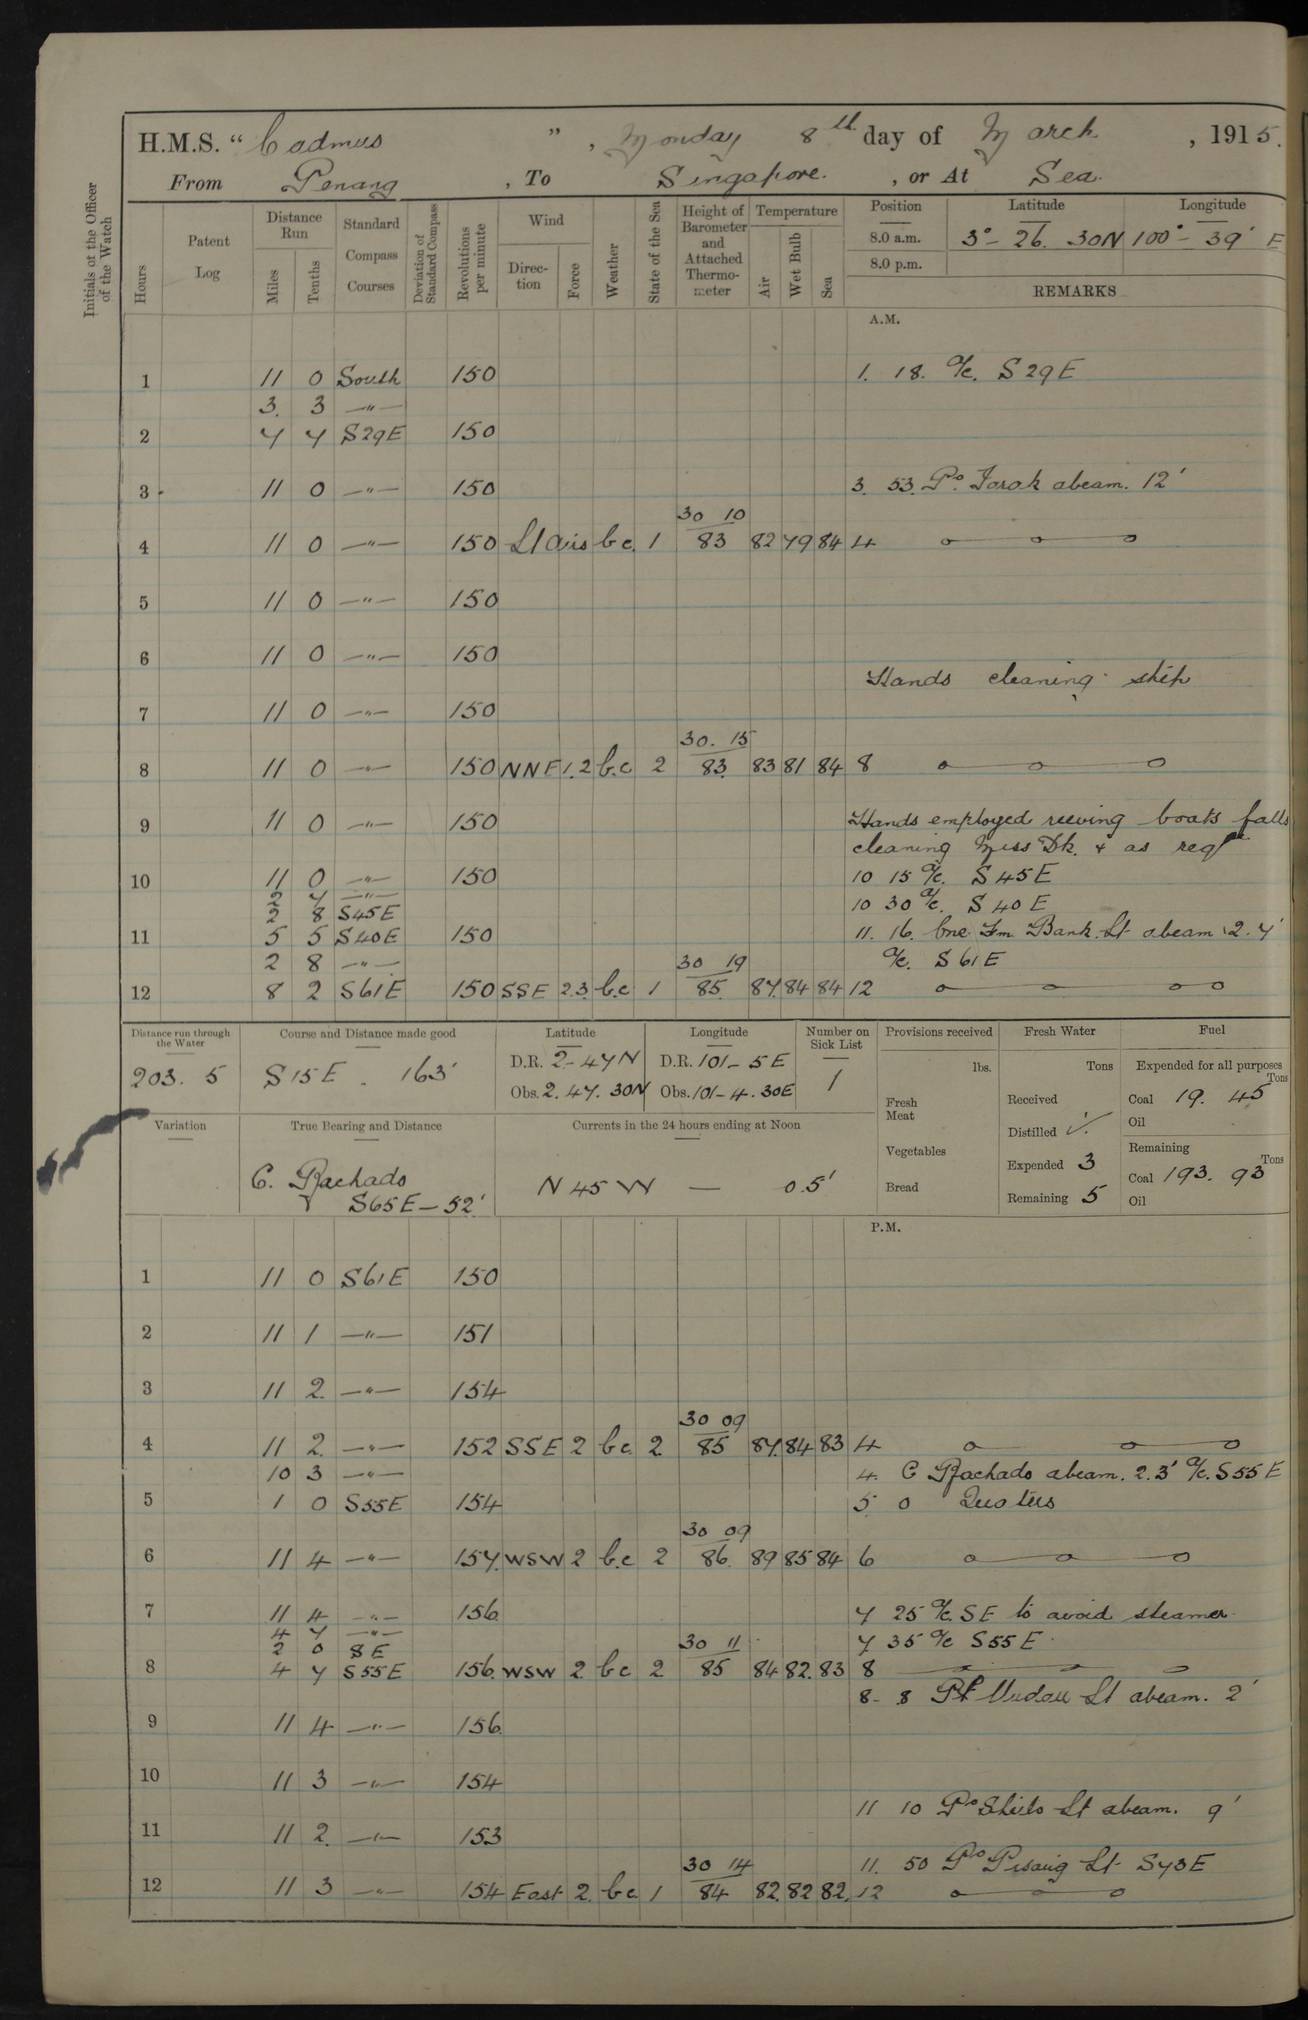 H.M.S. “ Cadmus ”, Monday 8th day of March, 1915.
From Penang, To Singapore., or At Sea.
Initials of the Officer of the Watch
Hours
Patent Log
Distance Run
Miles Tenths
Standard Compass Courses
Deviation of Standard Compass
Revolutions per minute
Wind
Direction Force
Weather
State of the Sea
Height of Barometer and Attached Thermometer
Temperature
Air Wet Bulb Sea
Position Latitude Longitude
8.0 a.m. 3° - 26. 30N 100° - 39' E
8.0 p.m.
REMARKS
A.M.
1 11 0 South 150 1. 18. a/c. S29E
3. 3 -"-
2 7 7 S29E 150
3 11 0 -"- 150 3. 53. Po. Jarak abeam. 12'
30 10
4 11 0 -"- 150 Lt airs b.c. 1 83 82 79 84 4
5 11 0 -"- 150
6 11 0 -"- 150
Hands cleaning ship
7 11 0 -"- 150
30. 15
8 11 0 -"- 150 NNE 1.2 b.c 2 83. 83 81 84 8
9 11 0 -"- 150 Hands employed reeving boats falls
cleaning Mess Dk. & as reqd
10 11 0 -"- 150 10 15 a/c. S45E
2 7 -"-
2 8 S45E 10 30 a/c. S40E
11 5 5 S40E 150 11. 16. One Fm Bank. Lt abeam 2.7'
2 8 -"- 30 19 a/c. S61E
12 8 2 S61E 150 SSE 2.3. b.c 1 85. 87. 84 84 12
Distance run through the Water
203. 5
Course and Distance made good
S15E. 163'
Latitude
D.R. 2-47N
Obs. 2. 47. 30N
Longitude
D.R. 101-5E
Obs. 101-4.30E
Number on Sick List
1
Provisions received
lbs.
Fresh Meat
Vegetables
Bread
Fresh Water
Tons
Received
Distilled ✓.
Expended 3
Remaining 5
Fuel
Expended for all purposes
Tons
Coal 19. 45
Oil
Remaining
Tons
Coal 193. 93
Oil
Variation
True Bearing and Distance
C. Rachado
S65E-52'
Currents in the 24 hours ending at Noon
N45W — 0.5'
P.M.
1 11 0 S61E 150
2 11 1 -"- 151
3 11 2. -"- 154
30 09
4 11 2. -"- 152 SSE 2 b.c. 2. 85 87. 84 83 4
10 3 -"- 4. C Rachado abeam. 2.3' a/c. S55E
5 1 0 S55E 154 5 0 Quarters
30 09
6 11 4 -"- 157. WSW 2 b.c 2 86. 89 85 84 6
7 11 4 -"- 156. 7 25 a/c. SE to avoid steamer.
4 7 -"-
2 0 SE 30 11 7 35 a/c S55E.
8 4 7 S55E 156. WSW 2 b.c 2 85 84 82. 83 8
8- 8 Lt abeam. 2'
9 11 4 -"- 156.
10 11 3 -"- 154
11 10 Po Lt abeam. 9'
11 11 2. -"- 153
30 14 11. 50 Po Pisang Lt S73E
12 11 3 -"- 154 East 2. b.c. 1 84 82. 82 82. 12